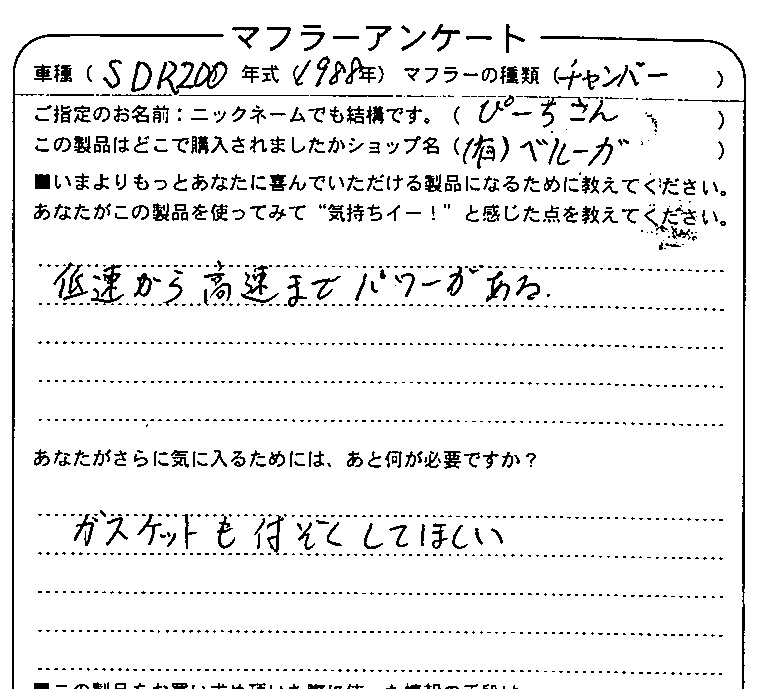 マフラーアンケート
車種（SDR200 年式（1988年）マフラーの種類（チャンバー ）
ご指定のお名前：ニックネームでも結構です。（ ぴーちさん ）
この製品はどこで購入されましたかショップ名（(有)ベルーガ ）
■いまよりもっとあなたに喜んでいただける製品になるために教えてください。
あなたがこの製品を使ってみて“気持ちイー！”と感じた点を教えてください。
低速から高速までパワーがある.
あなたがさらに気に入るためには、あと何が必要ですか？
ガスケットも付ぞくしてほしい
■この製品をお買い求め頂いた際に使った情報の手段は